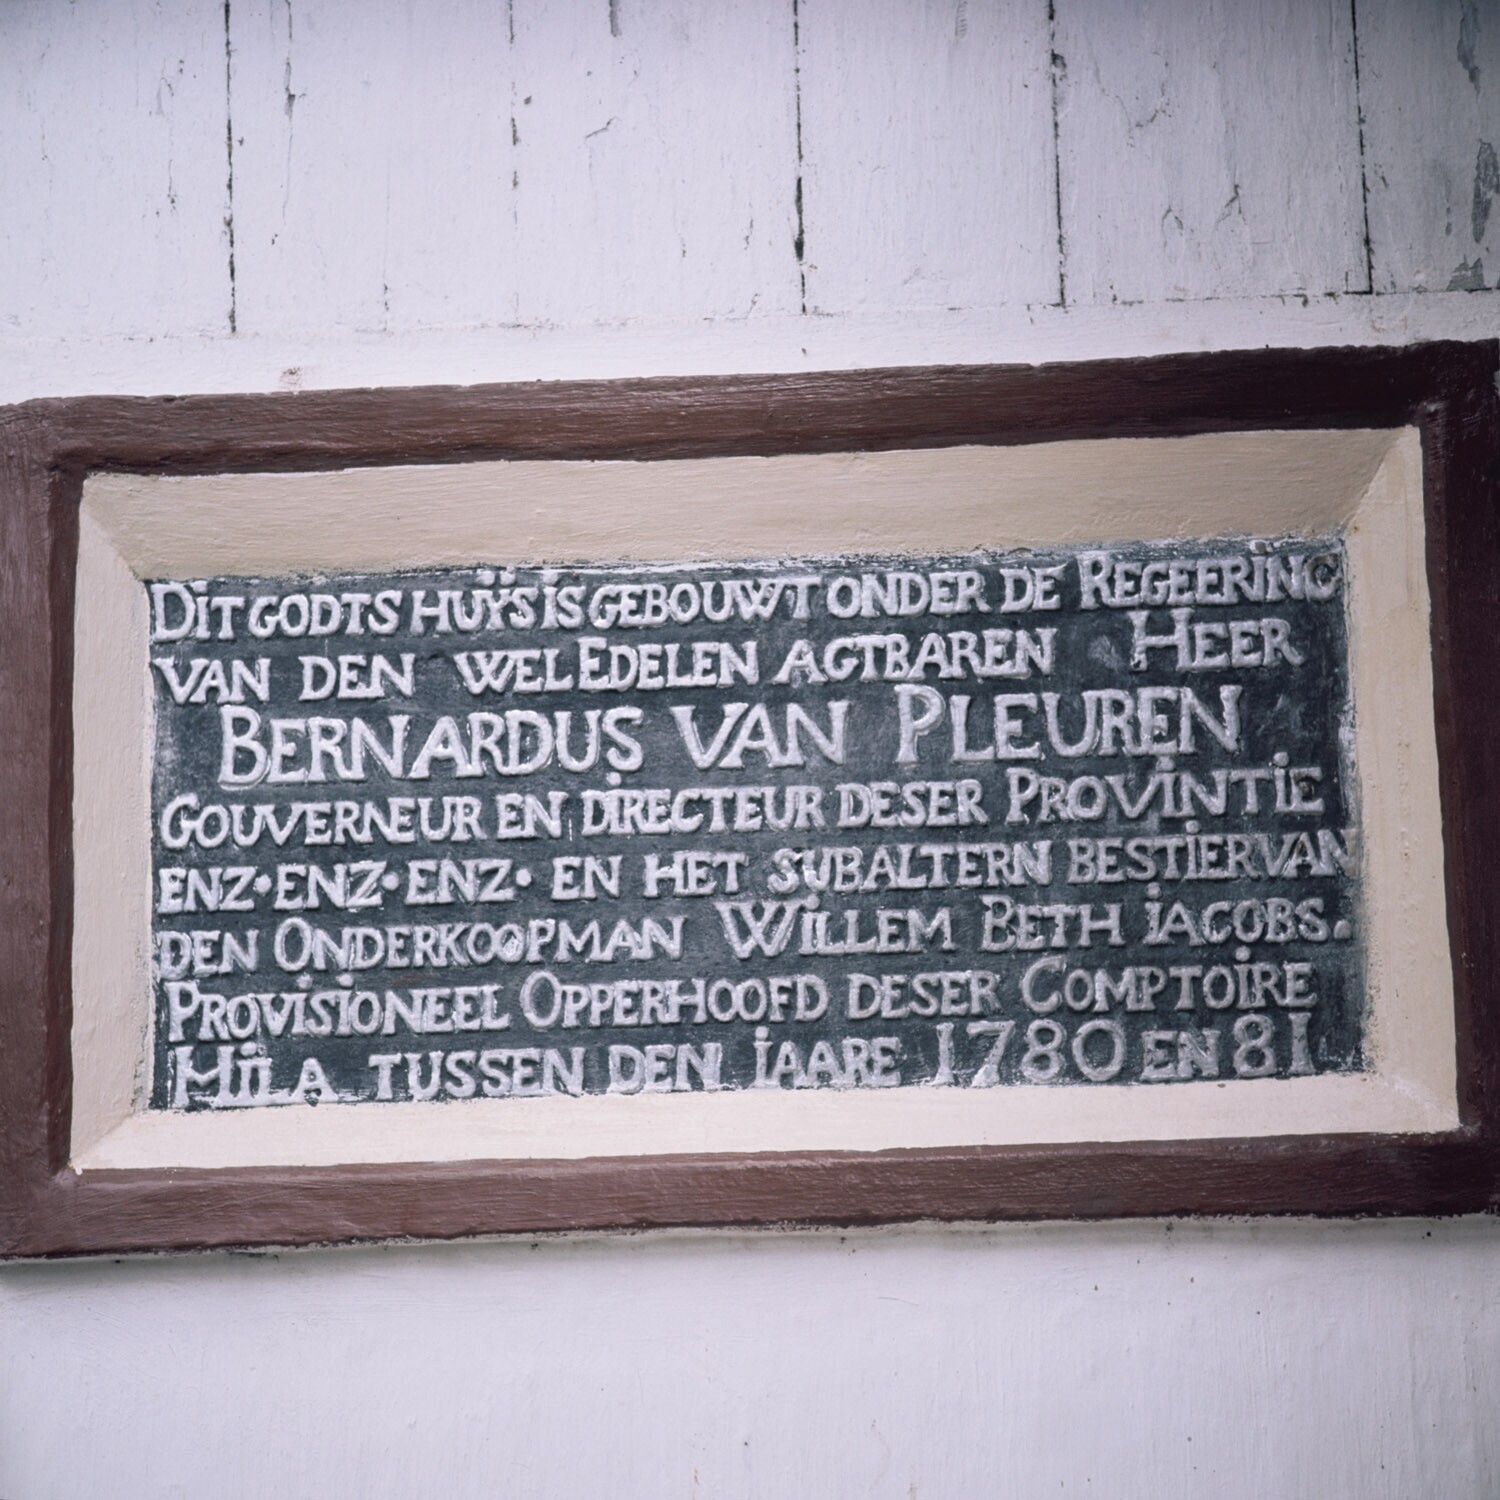 DiT GODTS HUŸS iS GEBOUWT ONDER DE REGEERiNG
VAN DEN WEL EDELEN AGTBAREN HEER
BERNARDUS VAN PLEUREN
GOUVERNEUR EN DiRECTEUR DESER PROViNTiE
ENZ·ENZ·ENZ· EN HET SUBALTERN BESTiER VAN
DEN ONDERKOOPMAN WiLLEM BETH iACOBS.
PROViSiONEEL OPPERHOOFD DESER COMPTOiRE
HiLA TUSSEN DEN iAARE 1780 EN 81